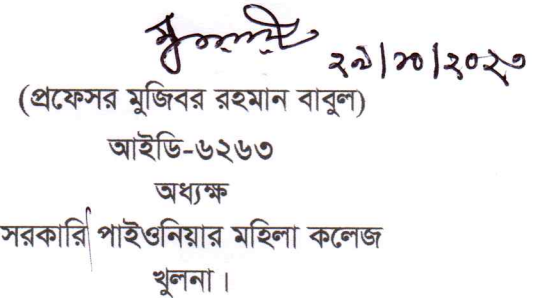 ২৯/১০/২০২৩
(প্রফেসর মুজিবর রহমান বাবুল)
আইডি-৬২৬৩
অধ্যক্ষ
সরকারি পাইওনিয়ার মহিলা কলেজ
খুলনা।